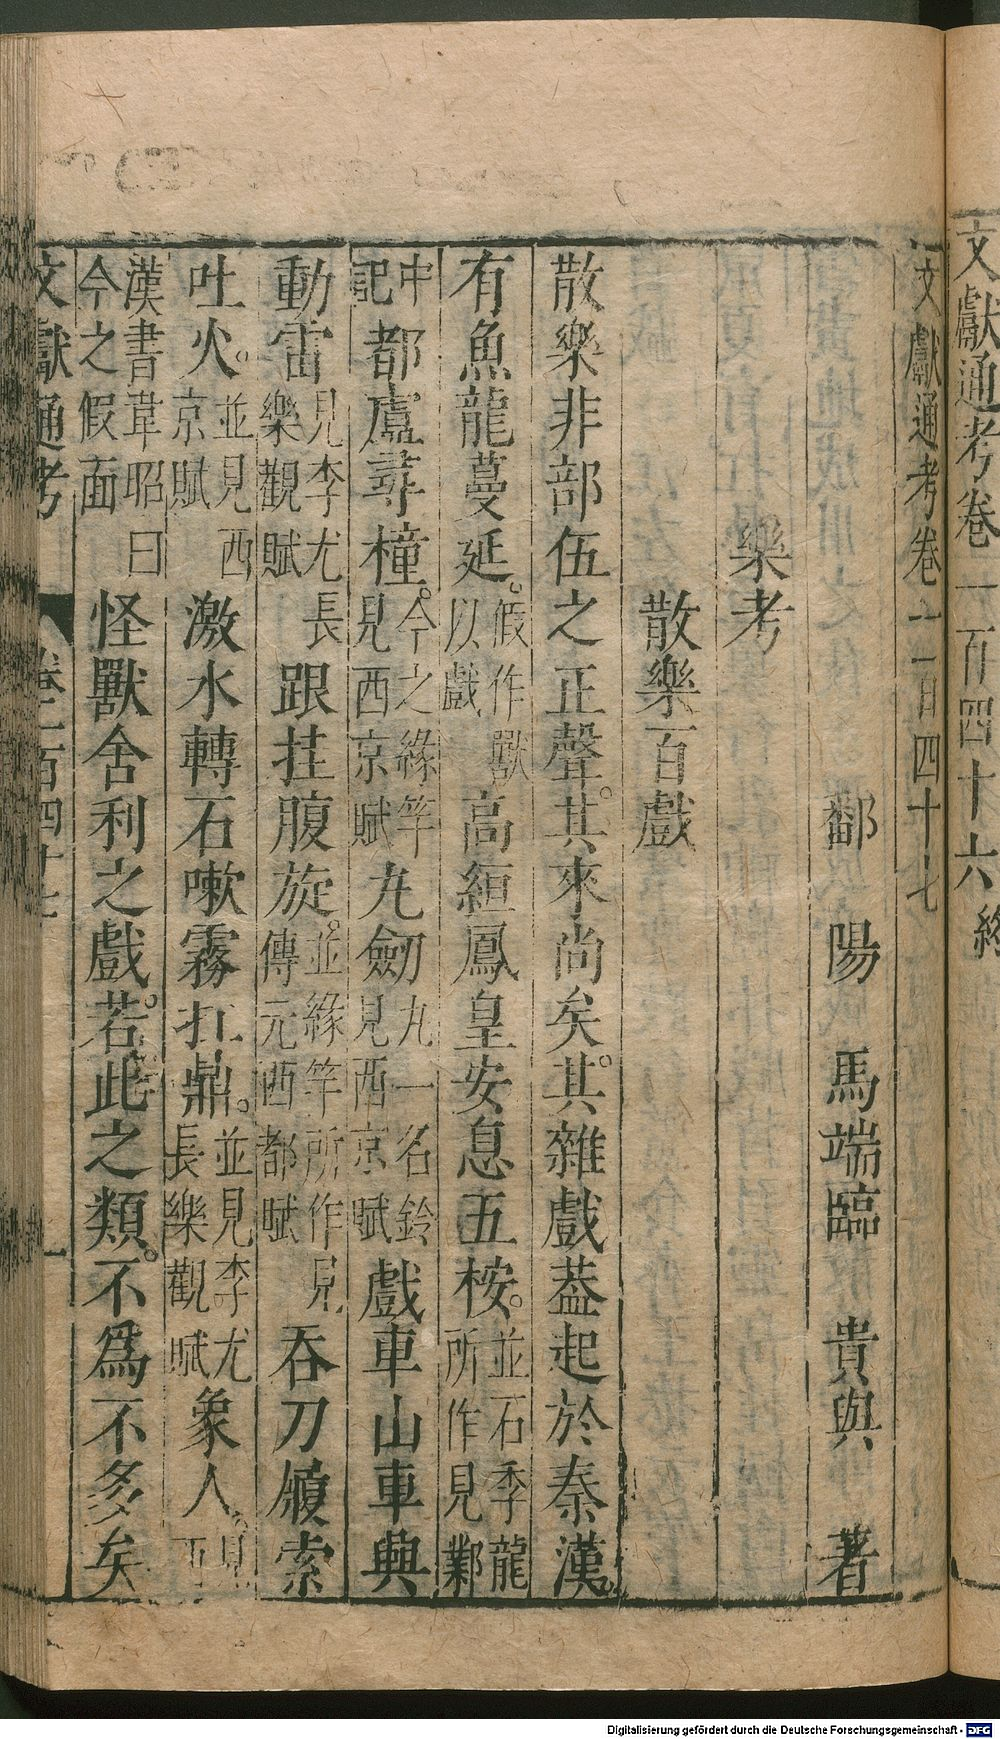 文獻通考卷一百四十六終
文獻通考卷一百四十七
鄱陽馬端臨貴與著
樂考
散樂百戲
散樂非部伍之正聲。其來尚矣。其雜戲蓋起於秦漢
有魚龍蔓延。假作獸以戲高絙鳳皇安息五桉。並石季龍所作見鄴
中記都盧尋橦。今之緣竿見西京賦九劒九一名鈴見西京賦戲車山車興
動雷見李尤長樂觀賦跟挂腹旋。並緣竿所作見傅元西都賦吞刀履索
吐火。並見西京賦激水轉石嗽霧扛鼎。並見李尤長樂觀賦象人。見西
漢書韋昭曰今之假面怪獸舍利之戲。若此之類。不爲不多矣
文獻通考 卷一百四十七 一
Digitalisierung gefördert durch die Deutsche Forschungsgemeinschaft - DFG